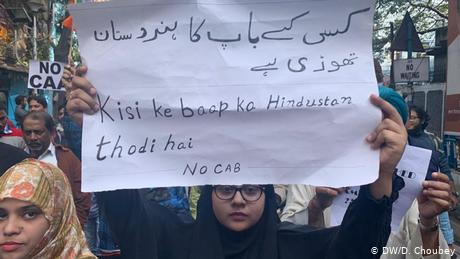 کسی کے باپ کا ہندوستان
تھوڑی ہے
Kisi ke baap ka Hindustan
thodi hai
NO CAB
NO
CAA
NO
WAITING
© DW/D. Choubey